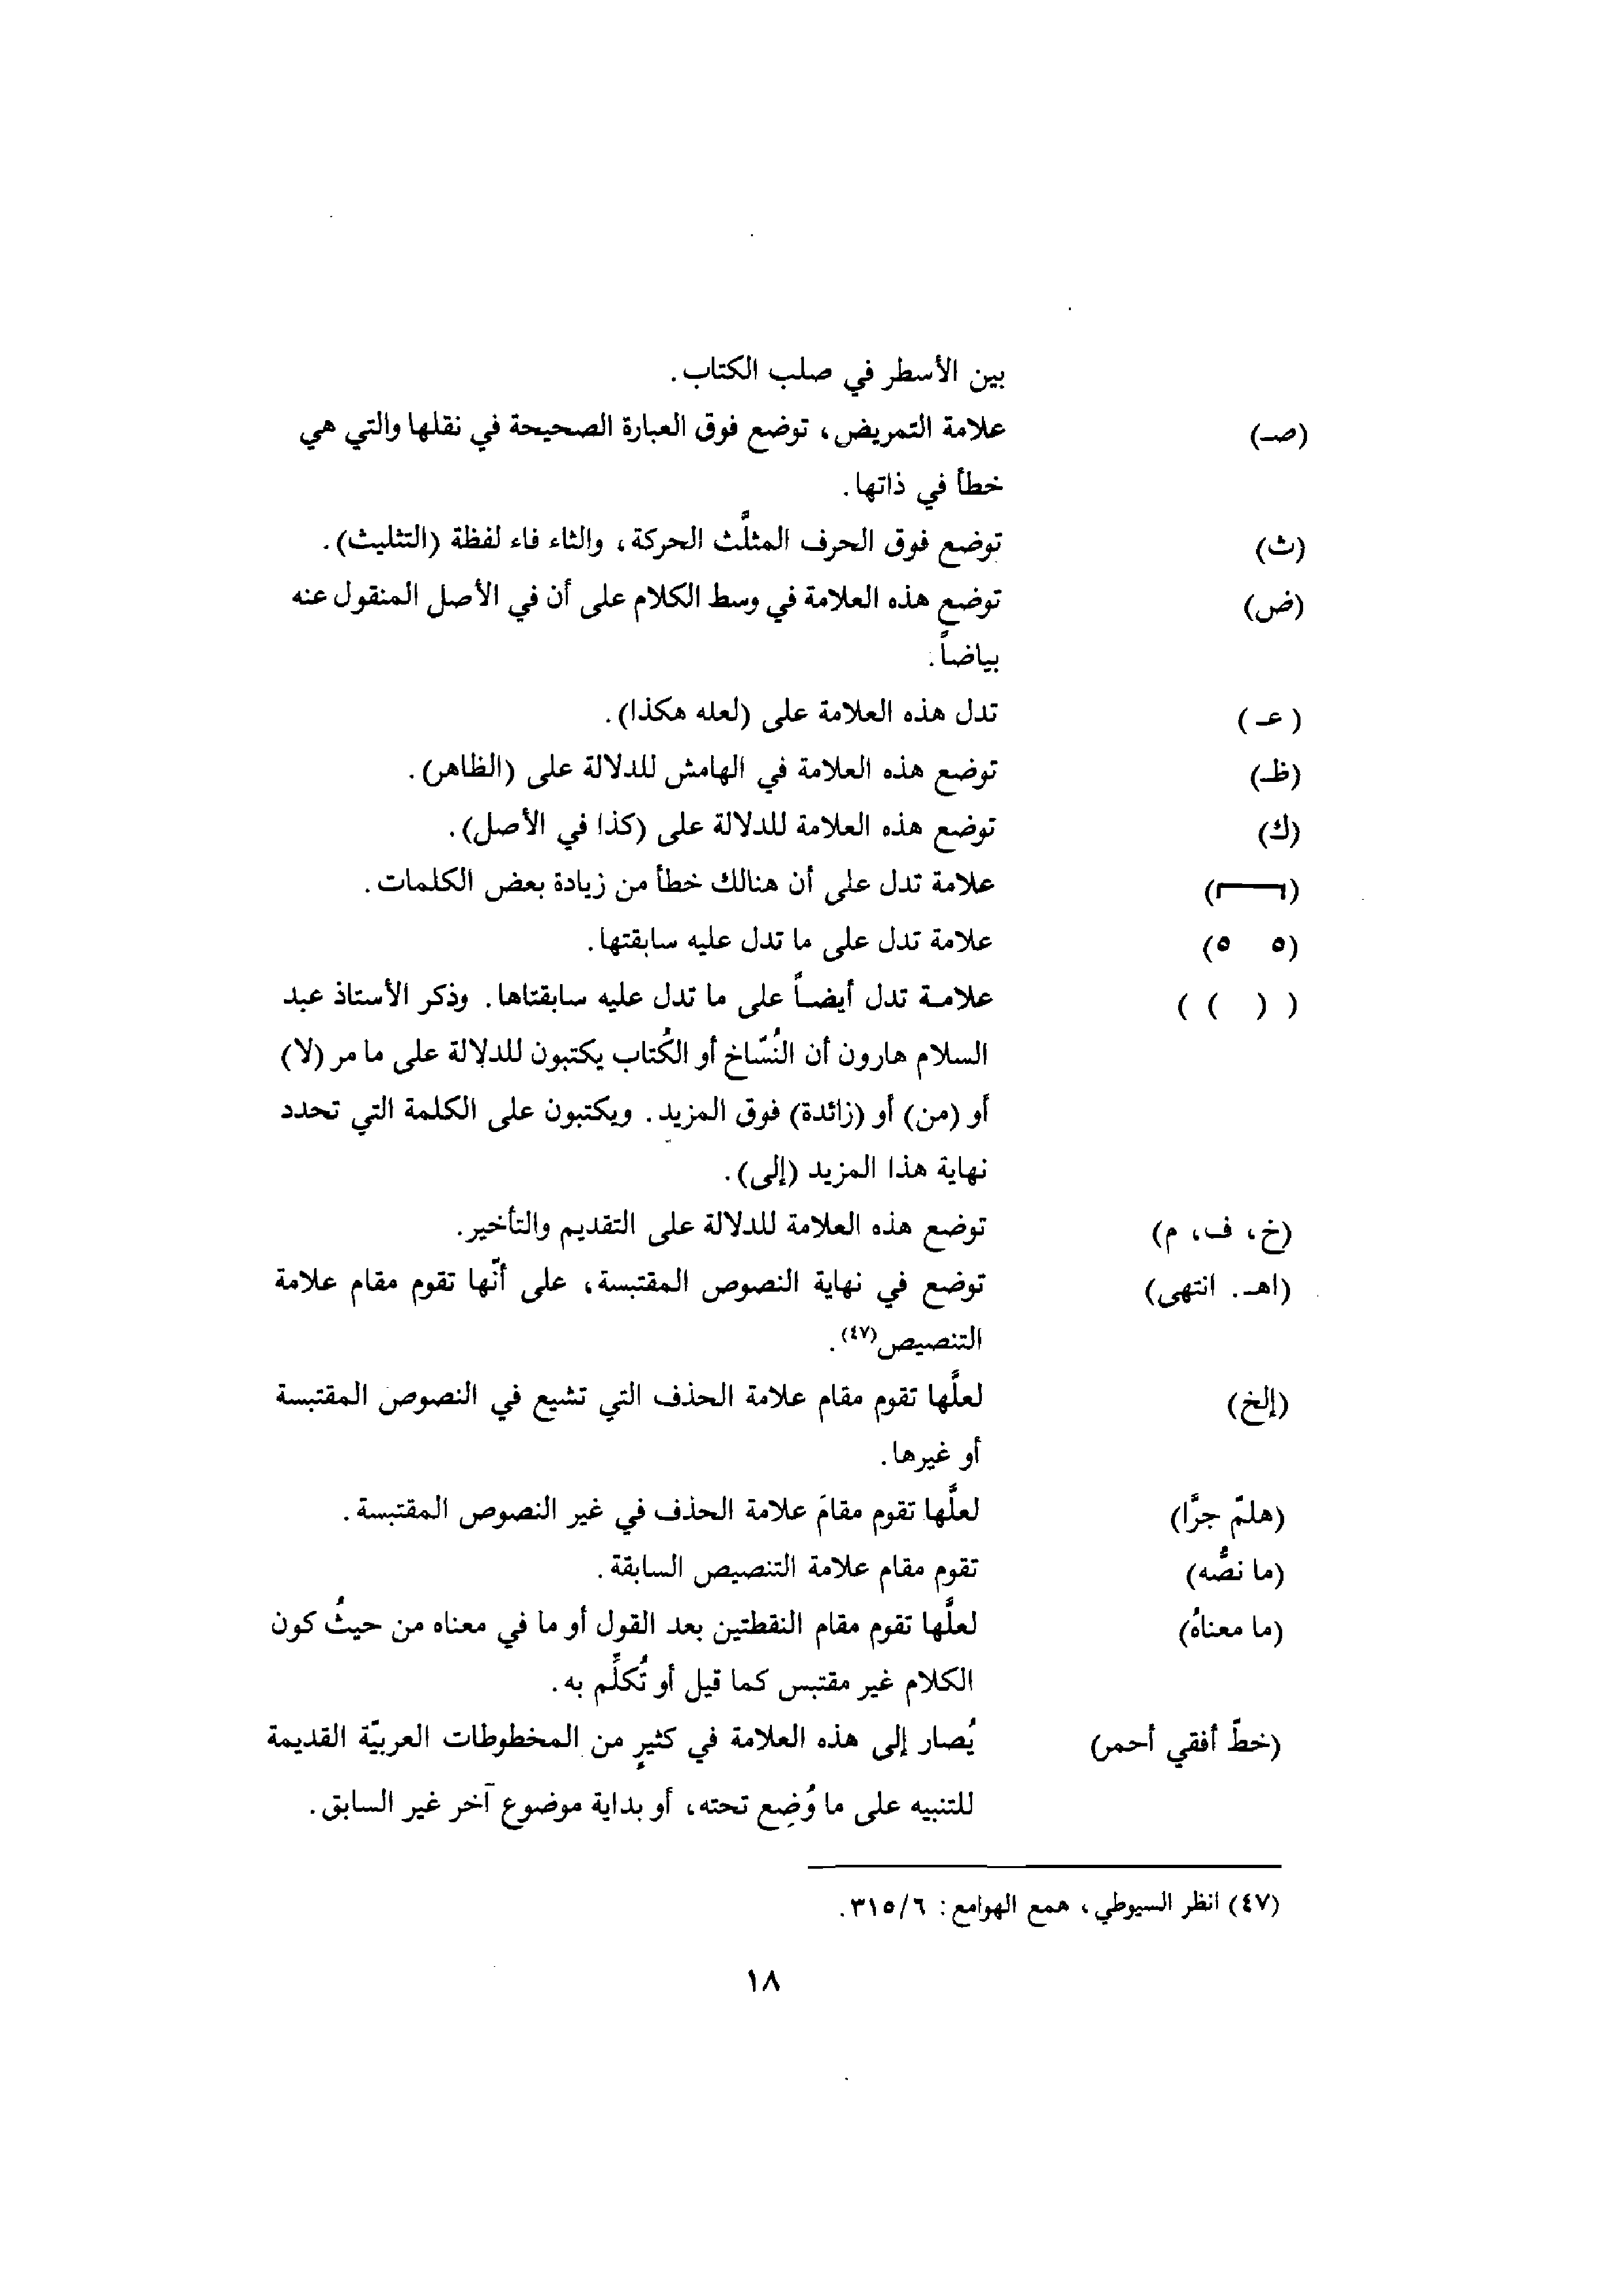 بين الأسطر في صلب الكتاب.
(صـ) علامة التمريض، توضع فوق العبارة الصحيحة في نقلها والتي هي
خطأ في ذاتها.
(ث) توضع فوق الحرف المثلَّث الحركة، والثاء فاء لفظة (التثليث).
(ض) توضع هذه العلامة في وسط الكلام على أن في الأصل المنقول عنه
بياضاً.
(عـ) تدل هذه العلامة على (لعله هكذا).
(ظـ) توضع هذه العلامة في الهامش للدلالة على (الظاهر).
(ك) توضع هذه العلامة للدلالة على (كذا في الأصل).
(┌──┐) علامة تدل على أن هنالك خطأ من زيادة بعض الكلمات.
(٥ ٥) علامة تدل على ما تدل عليه سابقتها.
( ( ) ) علامة تدل أيضاً على ما تدل عليه سابقتاها. وذكر الأستاذ عبد
السلام هارون أن النُسّاخ أو الكُتاب يكتبون للدلالة على ما مر (لا)
أو (من) أو (زائدة) فوق المزيد. ويكتبون على الكلمة التي تحدد
نهاية هذا المزيد (إلى).
(خ، ف، م) توضع هذه العلامة للدلالة على التقديم والتأخير.
(اهـ. انتهى) توضع في نهاية النصوص المقتبسة، على أنّها تقوم مقام علامة
التنصيص(٤٧).
(إلخ) لعلَّها تقوم مقام علامة الحذف التي تشيع في النصوص المقتبسة
أو غيرها.
(هلمّ جرًّا) لعلَّها تقوم مقامَ علامة الحذف في غير النصوص المقتبسة.
(ما نصُّه) تقوم مقام علامة التنصيص السابقة.
(ما معناهُ) لعلَّها تقوم مقام النقطتين بعد القول أو ما في معناه من حيثُ كون
الكلام غير مقتبس كما قيل أو تُكلِّم به.
(خطّ أفقي أحمر) يُصار إلى هذه العلامة في كثيرٍ من المخطوطات العربيّة القديمة
للتنبيه على ما وُضِع تحته، أو بداية موضوع آخر غير السابق.
(٤٧) انظر السيوطي، همع الهوامع: ٣١٥/٦.
١٨